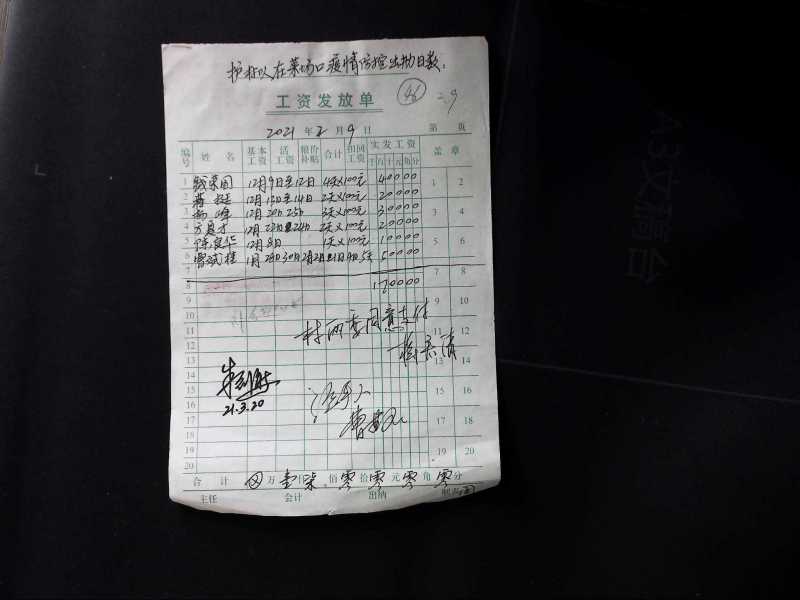 护村队在菜场口疫情防控出勤日数:
工资发放单
46
2.9
2021 年 2 月 9 日 第 页
编号 姓名 基本工资 活工资 粮价补贴 合计 扣回工资 实发工资 千百十元角分 盖章
1 钱荣国 12月9日至12日 4天×100元 40000 1 2
2 12月13日至14日 2天×100元 20000
3 杨峰 12月20日25日 3天×100元 30000 3 4
4 方良才 12月23日至24日 2天×100元 20000
5 陈良华 12月8日 1天×100元 10000 5 6
6 曹斌桂 1月28日30日2月2日 5天 50000
7 7 8
8 170000
9 9 10
10
11 村两委同意支付 11 12
12
13 13 14
14
15 15 16
16 21.3.20
17 17 18
18
19 19 20
20
合计 万壹 柒佰零拾零元零角零分
主任 会计 出纳 制
A3文稿台